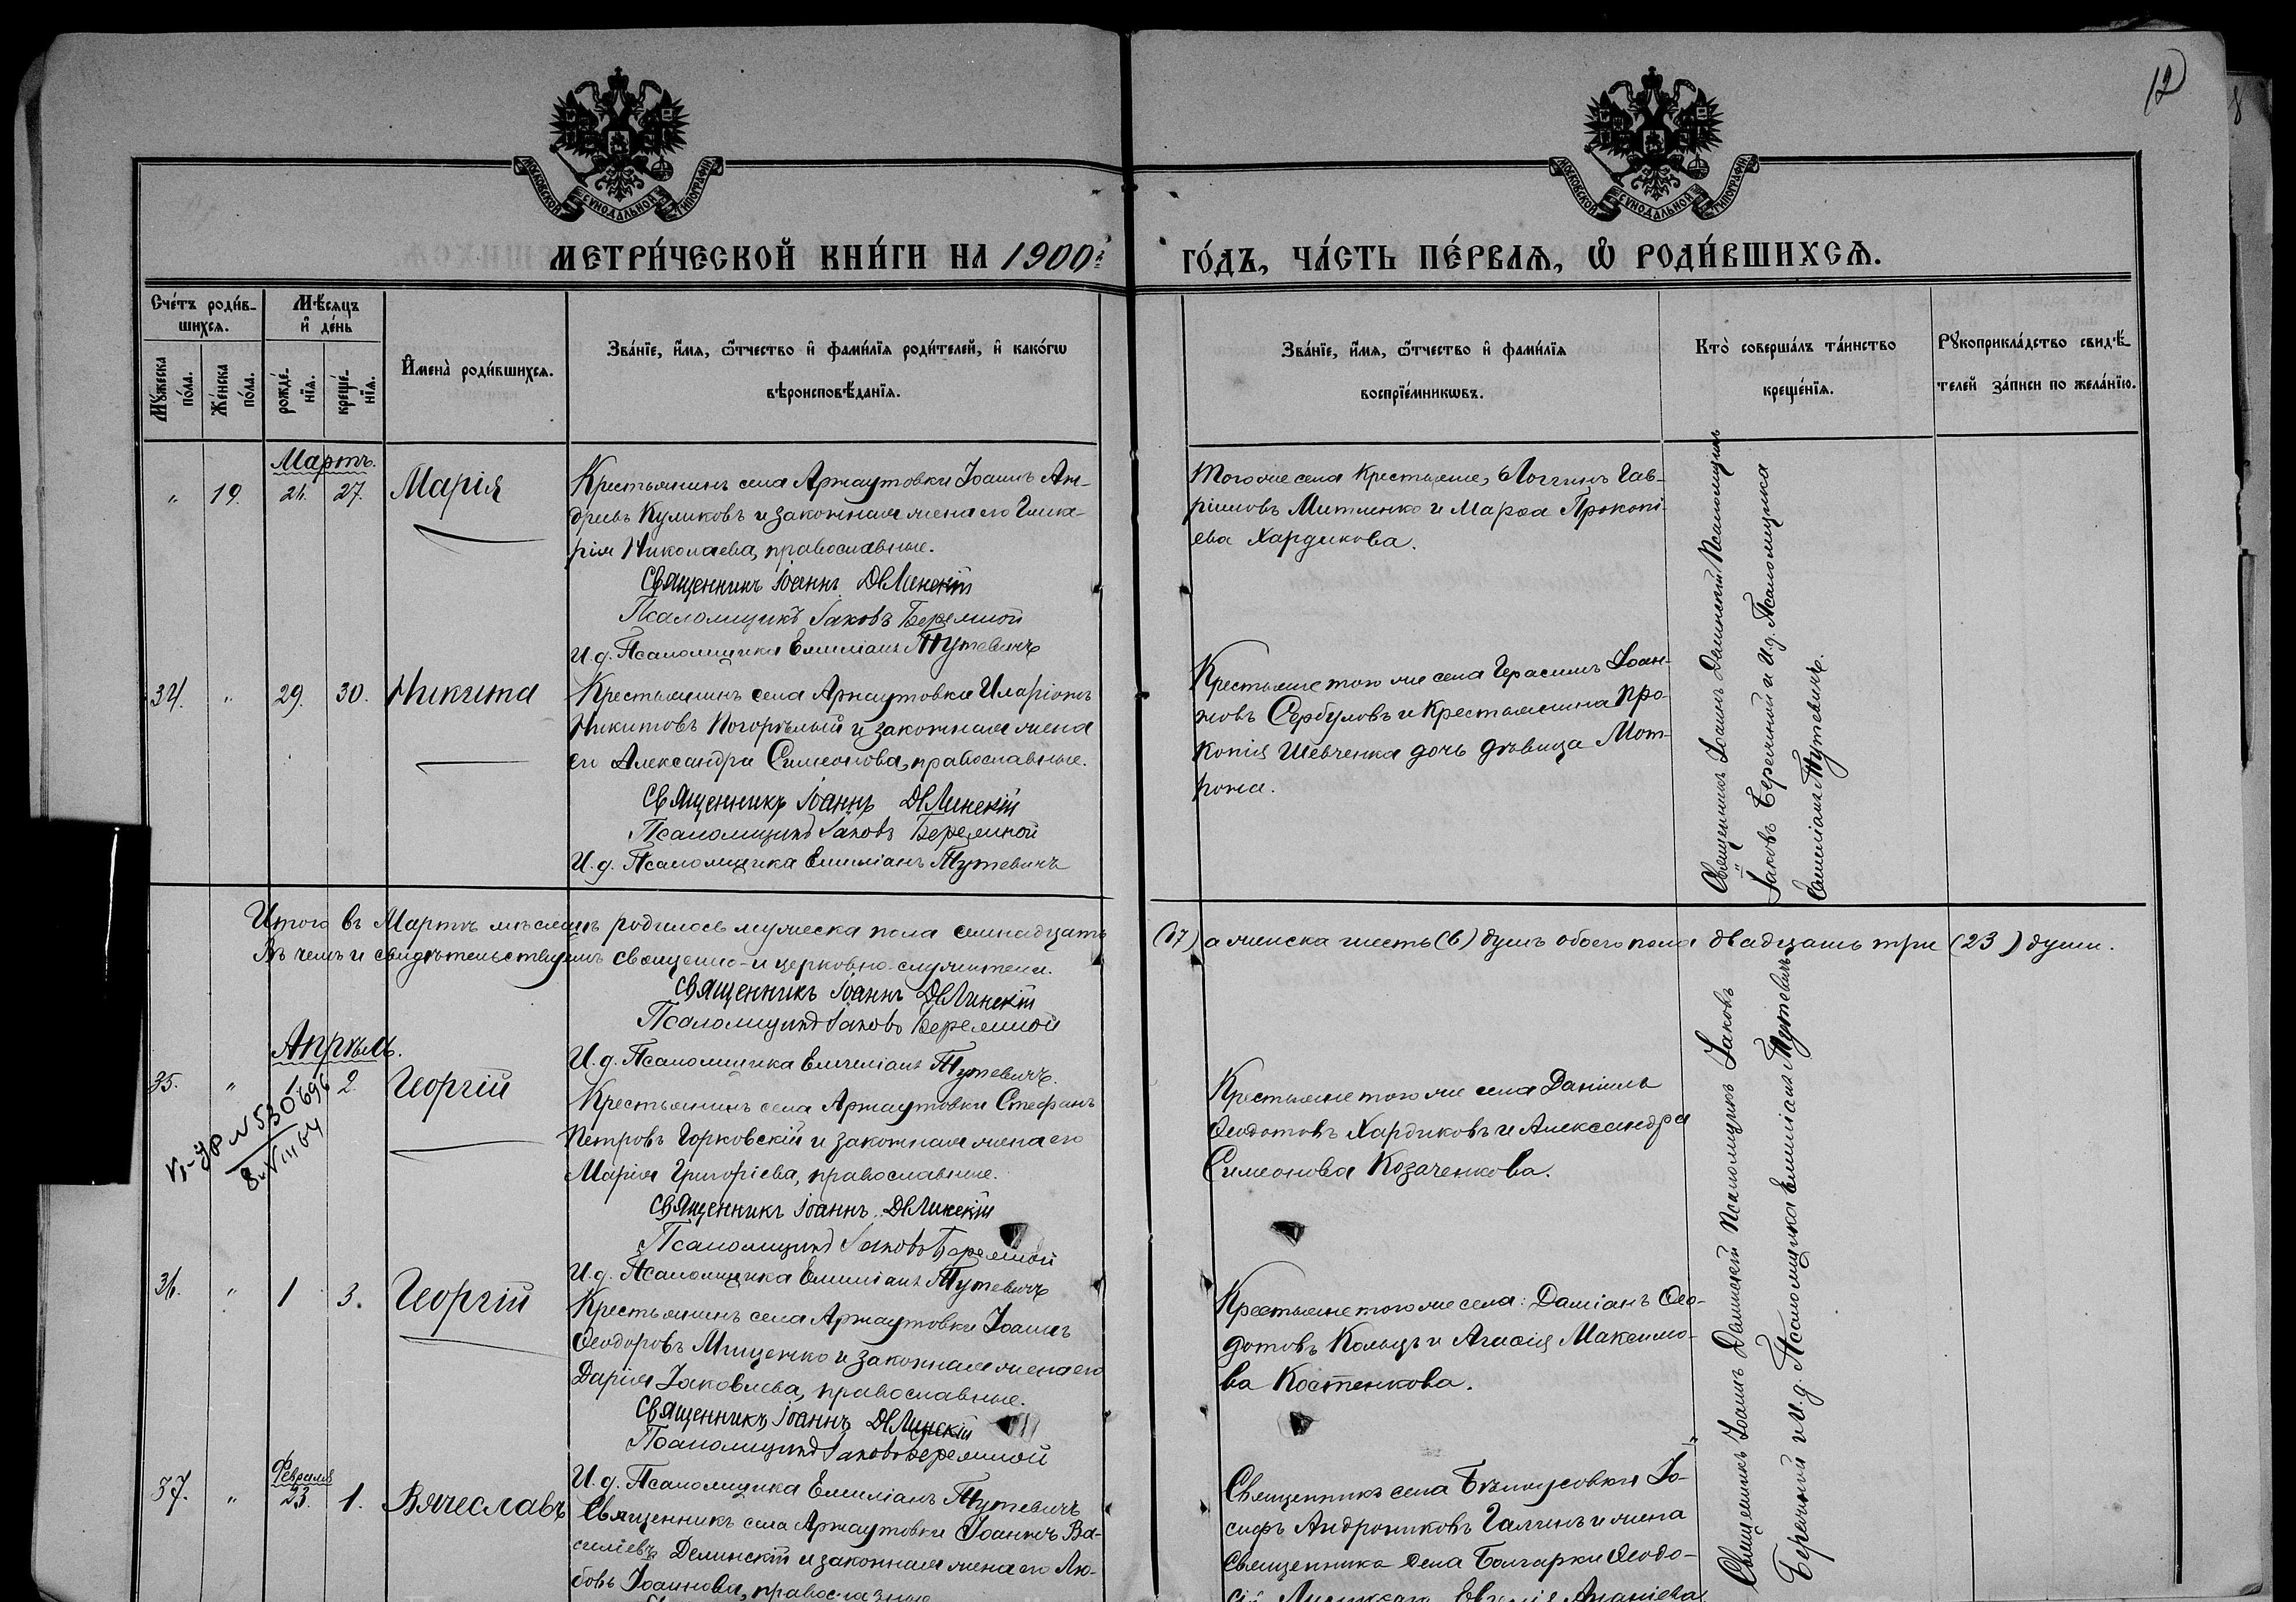 12
8
МОСКОВСКОЙ СѴНОДАЛЬНОЙ ТИПОГРАФІИ
МОСКОВСКОЙ СѴНОДАЛЬНОЙ ТИПОГРАФІИ
МЕТРИ́ЧЕСКОЙ КНИ́ГИ НА 1900 г.
ГО́ДЪ, ЧА́СТЬ ПЕ́РВАѦ, Ѡ РОДИ́ВШИХСѦ.
Сче́тъ роди́в-
шихсѧ.
Мꙋ́жеска по́ла.
Же́нска по́ла.
Мѣ́сяцъ
и де́нь
рожде́-
нїѧ.
креще́-
нїѧ.
И҆мена̀ роди́вшихсѧ.
Зва́нїе, и҆́мѧ, ѻ҆́тчество и҆ фами́лїѧ роди́телей, и҆ како́гѡ
вѣроисповѣ́данїѧ.
Зва́нїе, и҆́мѧ, ѻ҆́тчество и҆ фами́лїѧ
воспрїе́мникѡвъ.
Кто̀ соверша́лъ та́инство
креще́нїѧ.
Рꙋкоприкла́дство свидѣ́-
телей за́писи по жела́нїю.
Мартъ.
" 19. 27. Марія
Крестьянинъ села Арнаутовки Іоаннъ Ан-
дреевъ Куликовъ и законная жена его Глике-
рія Николаева, православные.
Священникъ Іоаннъ Делинскій
Псаломщикъ Іаковъ Бережной
И. д. Псаломщика Емиліанъ Тутевичъ
Того же села крестьяне, Логгинъ Гав-
рииловъ Митленко и Марѳа Прокопі-
ева Хардикова.
34. " 29. 30. Никита
Крестьянинъ села Арнаутовки Иларіонъ
Никитовъ Погорѣлый и законная жена
его Александра Симеонова, православные.
Священникъ Іоаннъ Делинскій
Псаломщикъ Іаковъ Бережной
И. д. Псаломщика Емиліанъ Тутевичъ
Крестьяне того же села Герасимъ Іоан-
новъ Сербуловъ и крестьянина Про-
копія Шевченка дочь дѣвица Мот-
рона.
Священникъ Іоаннъ Делинскій Псаломщикъ
Іаковъ Бережной и И. д. Псаломщика
Емиліанъ Тутевичъ.
Итого въ Мартѣ мѣсяцѣ родилось мужеска пола семнадцать
(17) а женска шесть (6) душъ обоего пола двадцать три (23) души.
Въ чемъ и свидѣтельствуемъ священно-и церковно-служители.
Священникъ Іоаннъ Делинскій
Псаломщикъ Іаковъ Бережной
И. д. Псаломщика Емиліанъ Тутевичъ.
Апрѣль.
35. " 1. 2. Георгій
Крестьянинъ села Арнаутовки Стефанъ
Петровъ Горковскій и законная жена его
Марія Григоріева, православные.
Священникъ Іоаннъ Делинскій
Псаломщикъ Іаковъ Бережной
И. д. Псаломщика Емиліанъ Тутевичъ
Крестьяне того же села Даніилъ
Ѳеодотовъ Хардиковъ и Александра
Симеонова Козаченкова.
36. " 1 3. Георгій
Крестьянинъ села Арнаутовки Іоаннъ
Ѳеодоровъ Мищенко и законная жена его
Дарія Іаковлева, православные.
Священникъ Іоаннъ Делинскій
Псаломщикъ Іаковъ Бережной
И. д. Псаломщика Емиліанъ Тутевичъ
Крестьяне того же села: Даміанъ Ѳео-
дотовъ Кольцъ и Агаѳія Максимо-
ва Костенкова.
Февраля
37. " 23. 1. Вячеславъ
Священникъ села Арнаутовки Іоаннъ Ва-
силіевъ Делинскій и законная жена его Лю-
бовь Іоаннова, православные
Священникъ села Іо-
сифъ Андрониковъ Галинъ и жена
священника села Болгарки Ѳеодо-
Евгенія Ананіева
Священникъ Іоаннъ Делинскій Псаломщикъ Іаковъ
Бережной и И. д. Псаломщика Емиліанъ Тутевичъ